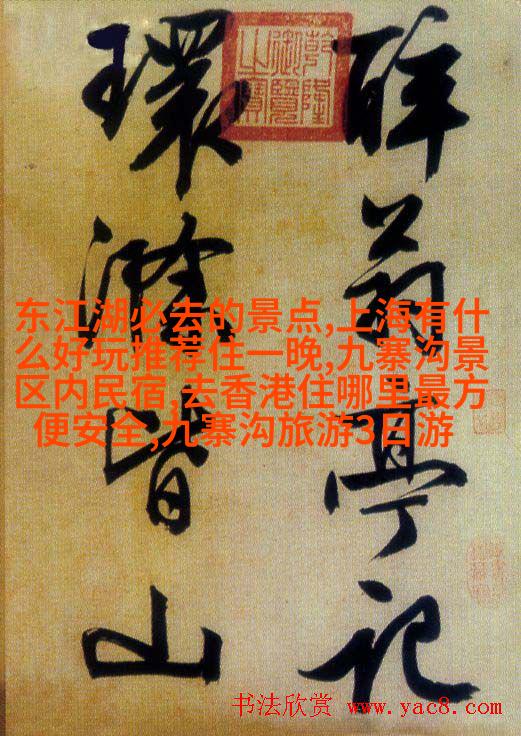 醉翁亭記
環滁皆山
乾隆御覽之寶
东江湖必去的景点,上海有什
么好玩推荐住一晚,九寨沟景
区内民宿,去香港住哪里最方
便安全,九寨沟旅游3日游
书法欣赏 www.yac8.com